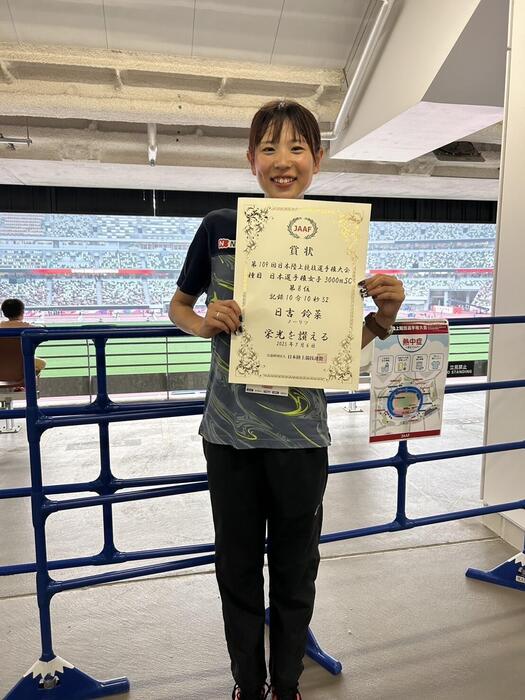 JAAF
賞状
第109回日本陸上競技選手権大会
種目 日本選手権女子3000mSC
第8位
記録10分10秒52
日吉 鈴菜
ノーリツ
栄光を讃える
2025年7月6日
公益財団法人 日本陸上競技連盟
熱中症
JAAF
立見禁止
NO STANDING